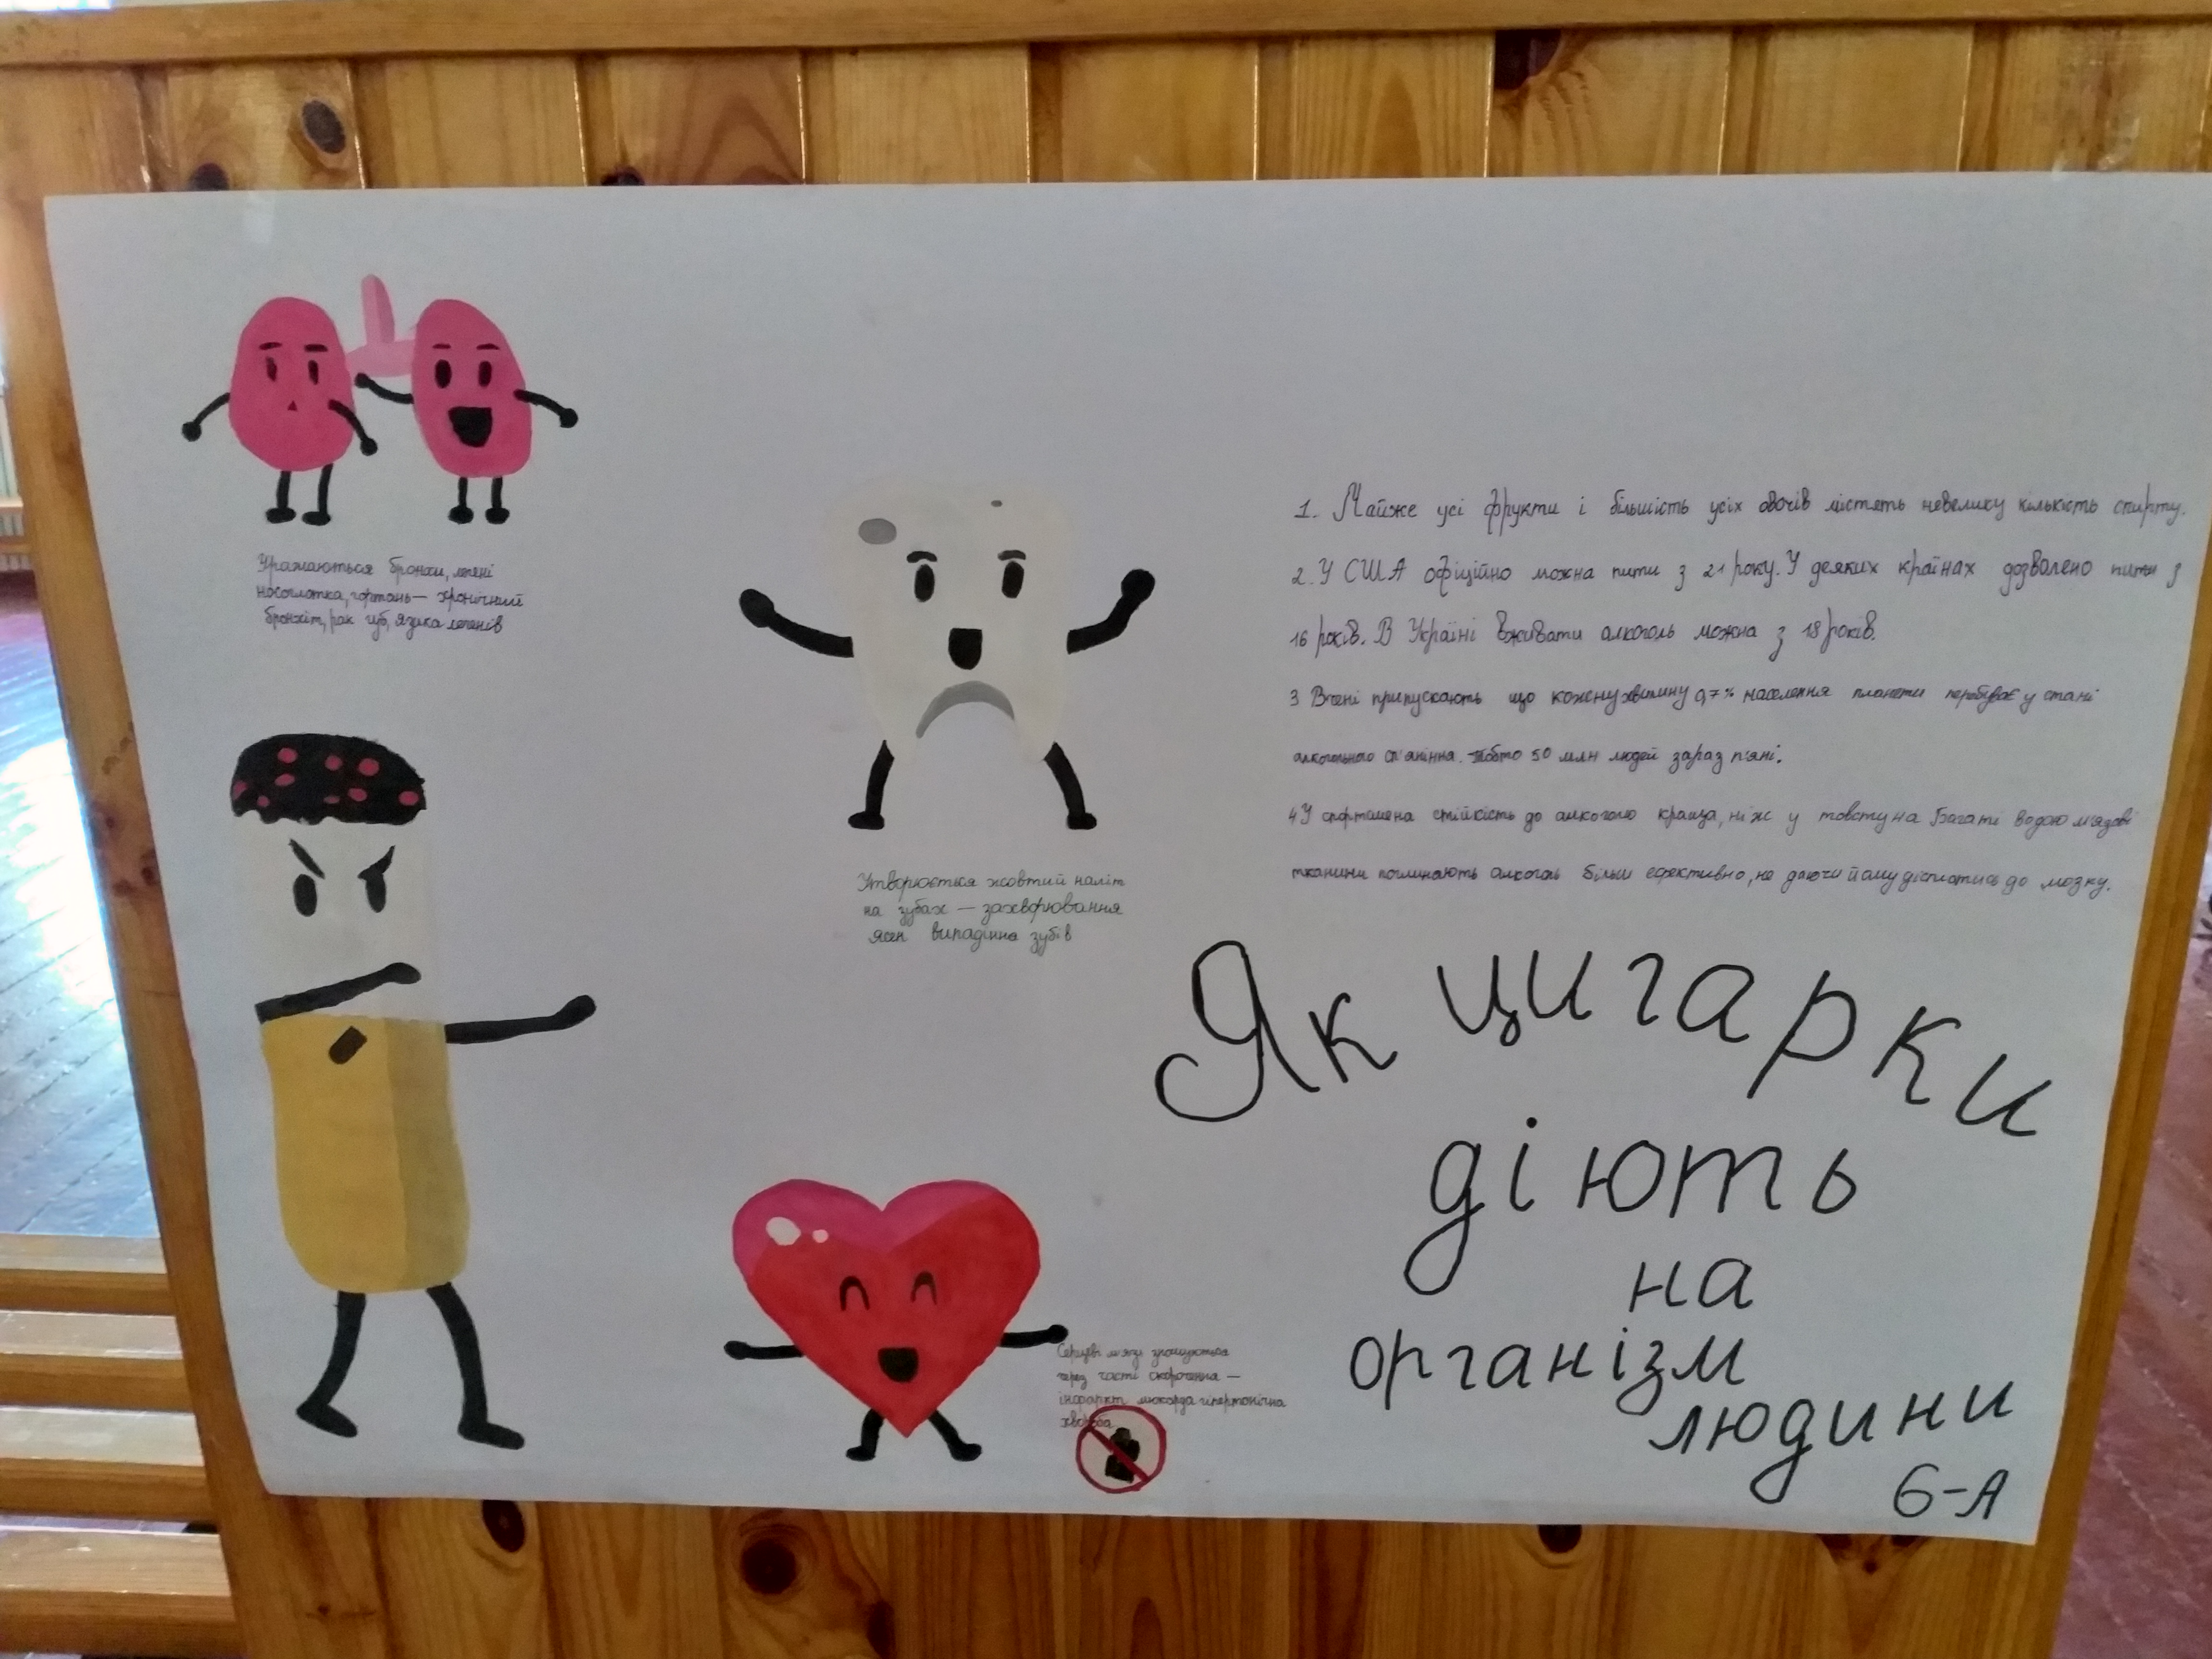 Уражаються бронхи, легені
носоглотка, гортань — хронічний
бронхіт, рак губ, язика легенів
Утворюється жовтий наліт
на зубах — захворювання
ясен випадіння зубів
1. Майже усі фрукти і більшість усіх овочів містять невелику кількість спирту.
2. У США офіційно можна пити з 21 року. У деяких країнах дозвалено пити з
16 років. В Україні вживати алкоголь можна з 18 років.
3 Вчені припускають що кожену хвилину 0,7% населення планети перебуває у стані
алкогольного сп'яніння. Тобто 50 млн людей зараз п'яні.
4 У спортсмена стійкість до алкоголю краща, ніж у товстуна Багаті водою м'язові
тканини поглинають алкоголь більш ефективно, не даючи йому дістатись до мозку.
Серцеві м'язи зношуються
через часті скорочення —
інфаркт міокарда гіпертонічна
хвороба
Як цигарки
діють
на
організм
людини
6-А